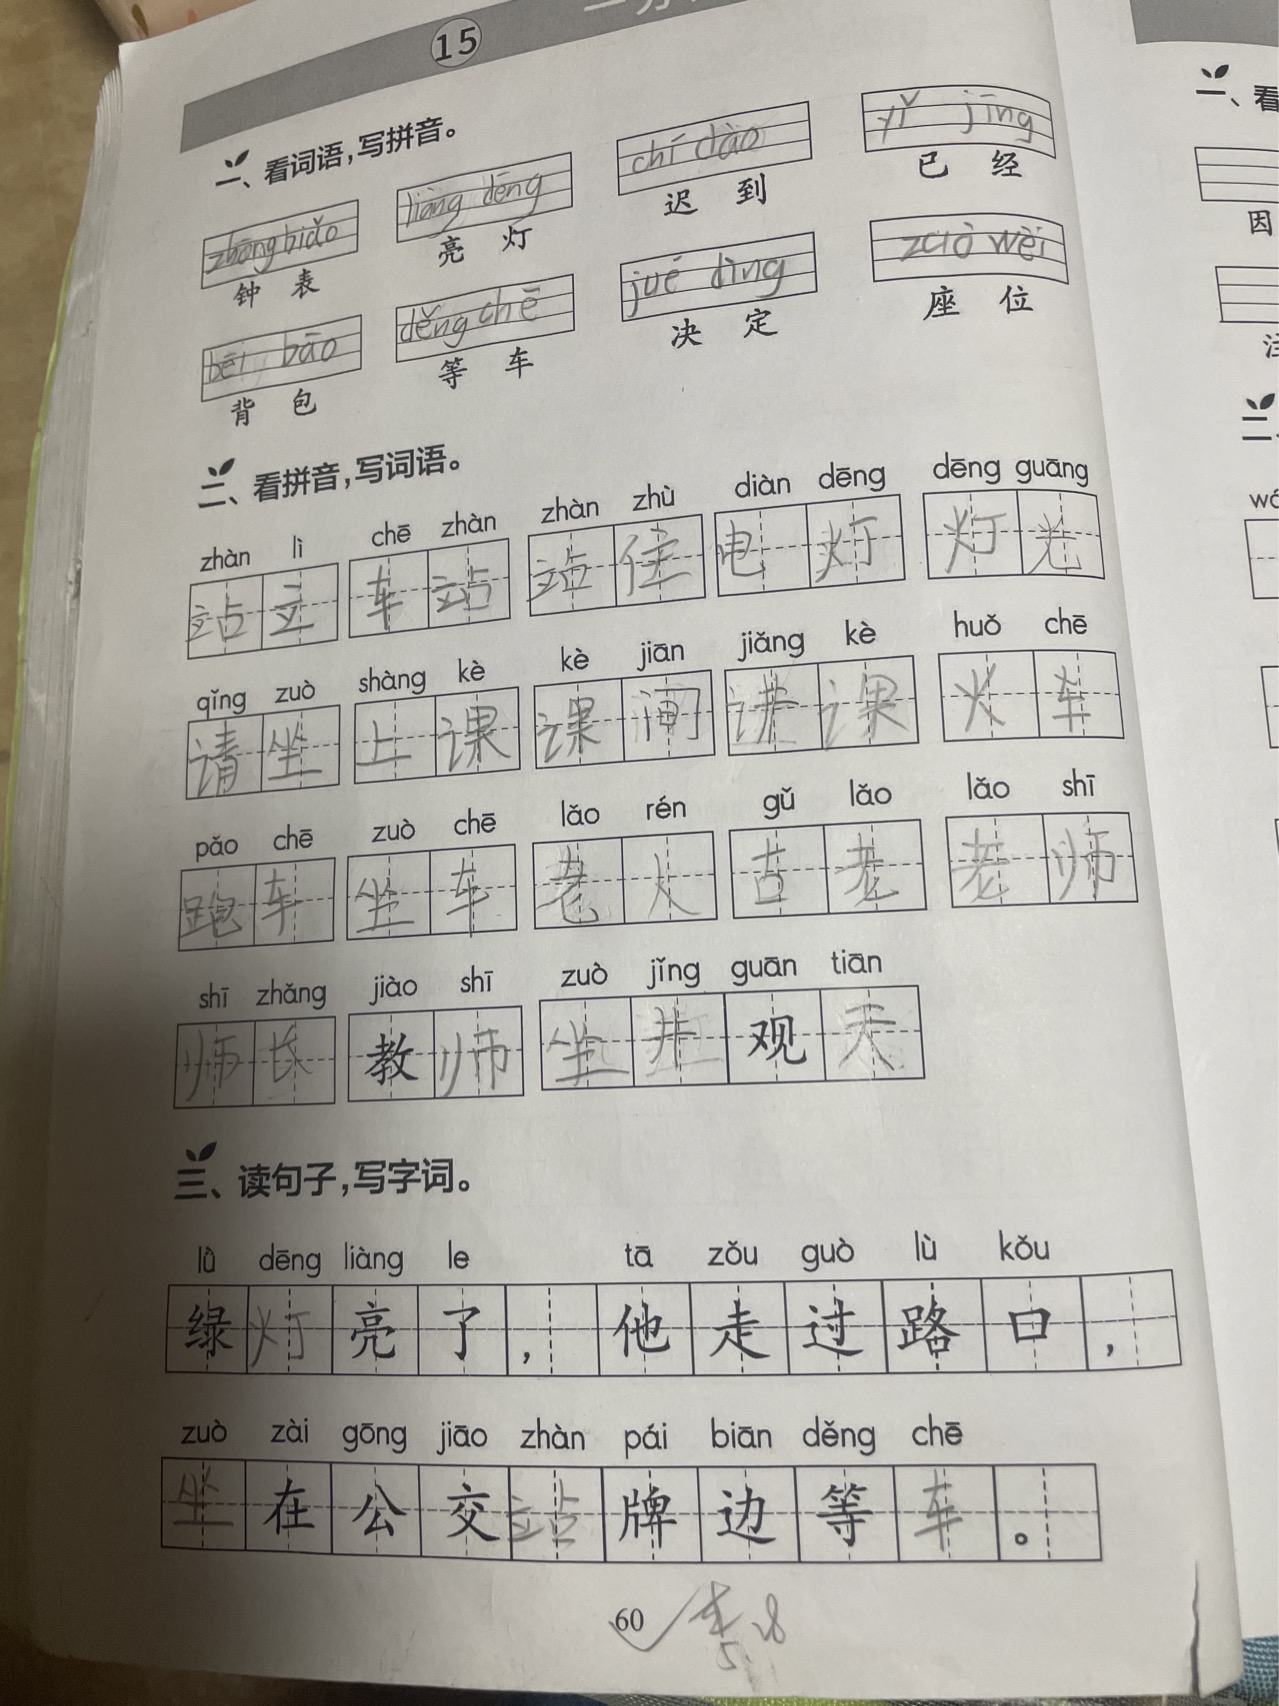 15
一、看词语,写拼音。
zhōng biǎo liàng dēng chí dào yǐ jīng
钟 表 亮 灯 迟 到 已 经
bēi bāo děng chē jué dìng zuò wèi
背 包 等 车 决 定 座 位
二、看拼音,写词语。
zhàn lì chē zhàn zhàn zhù diàn dēng dēng guāng
站 立 车 站 站 住 电 灯 灯 光
qǐng zuò shàng kè kè jiān jiǎng kè huǒ chē
请 坐 上 课 课 间 讲 课 火 车
pǎo chē zuò chē lǎo rén gǔ lǎo lǎo shī
跑 车 坐 车 老 人 古 老 老 师
shī zhǎng jiào shī zuò jǐng guān tiān
师 长 教 师 坐 井 观 天
三、读句子,写字词。
lǜ dēng liàng le tā zǒu guò lù kǒu
绿 灯 亮 了 , 他 走 过 路 口 ,
zuò zài gōng jiāo zhàn pái biān děng chē
坐 在 公 交 站 牌 边 等 车 。
60
一、看
因
注
二、